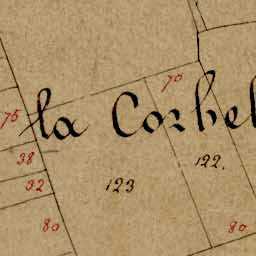 70
75
la Corbel
38
122.
32
123
80
80